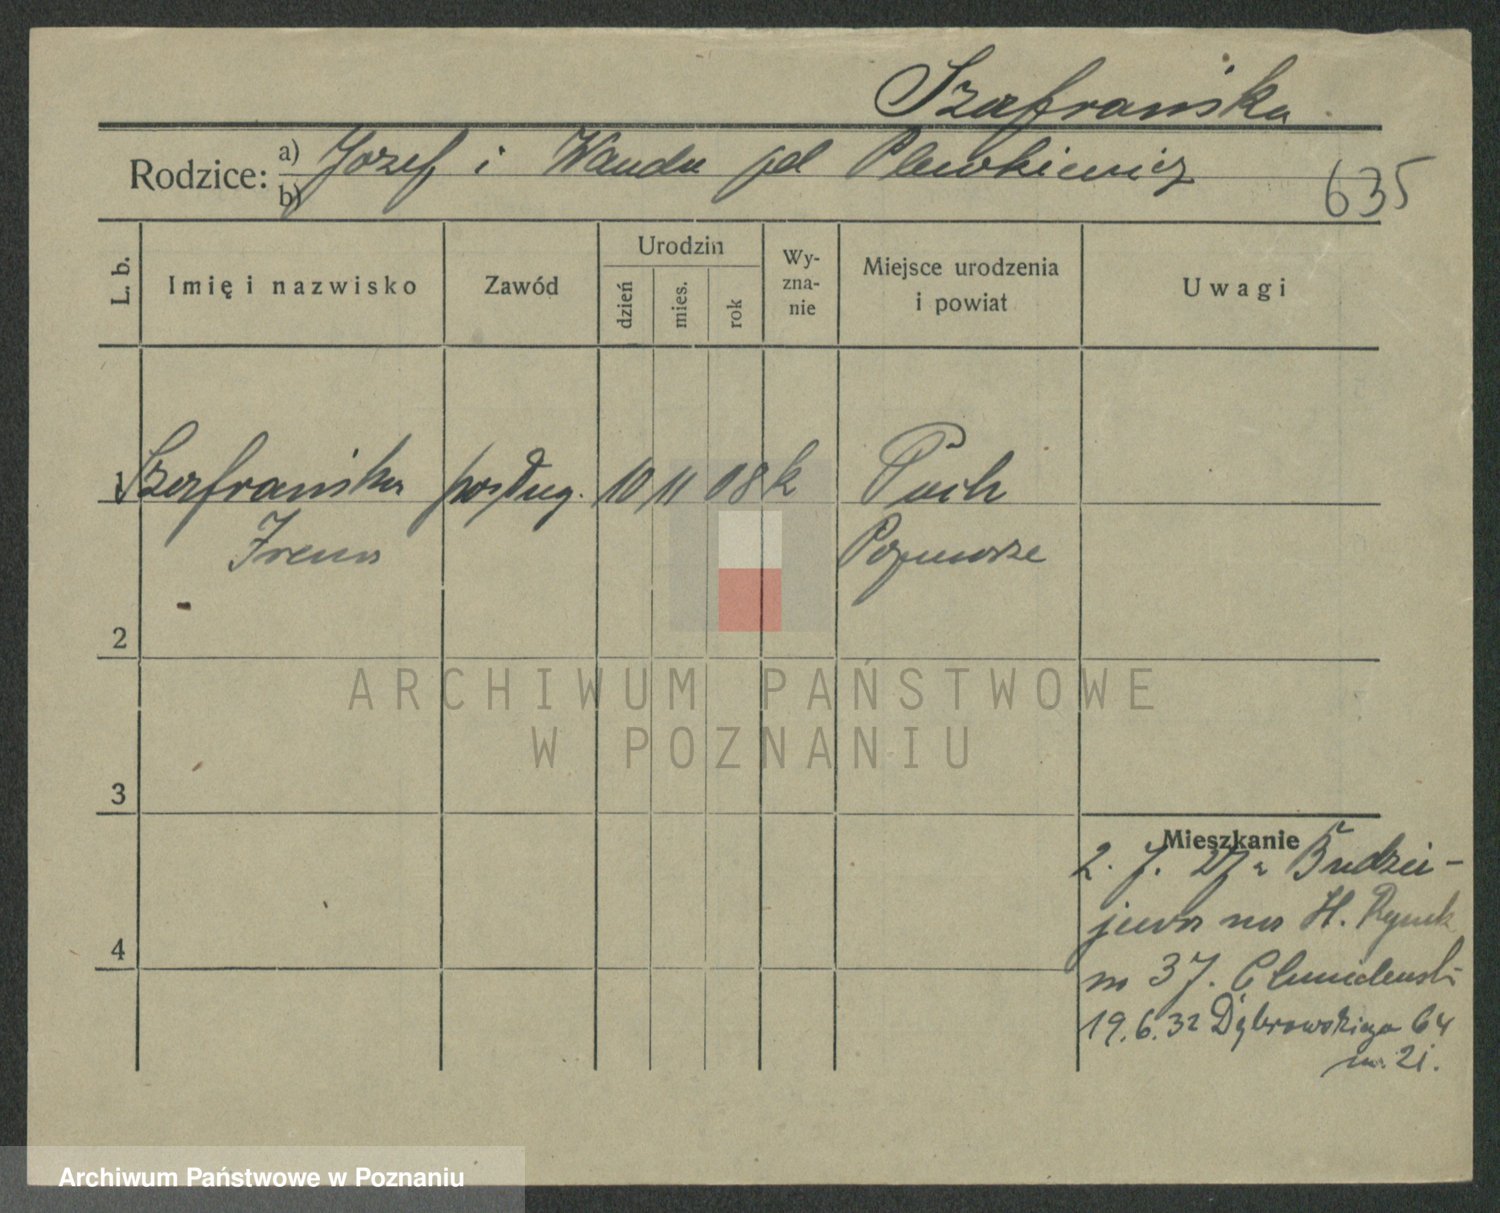 Szafrańska
Rodzice: a) Józef i Wanda pd Plewkiewicz
b)
635
L. b. Imię i nazwisko Zawód Urodzin Wy-zna-nie Miejsce urodzenia i powiat Uwagi
dzień mies. rok
1 Szafrańska posług. 10 11 08 k Puck
Irena Pomorze
2
ARCHIWUM PAŃSTWOWE
W POZNANIU
3
Mieszkanie
2. 7. 27 z Budzie-
jewa na St. Rynek
m 37.
4
19.6.32 Dąbrowskiego 64
m. 21.
Archiwum Państwowe w Poznaniu